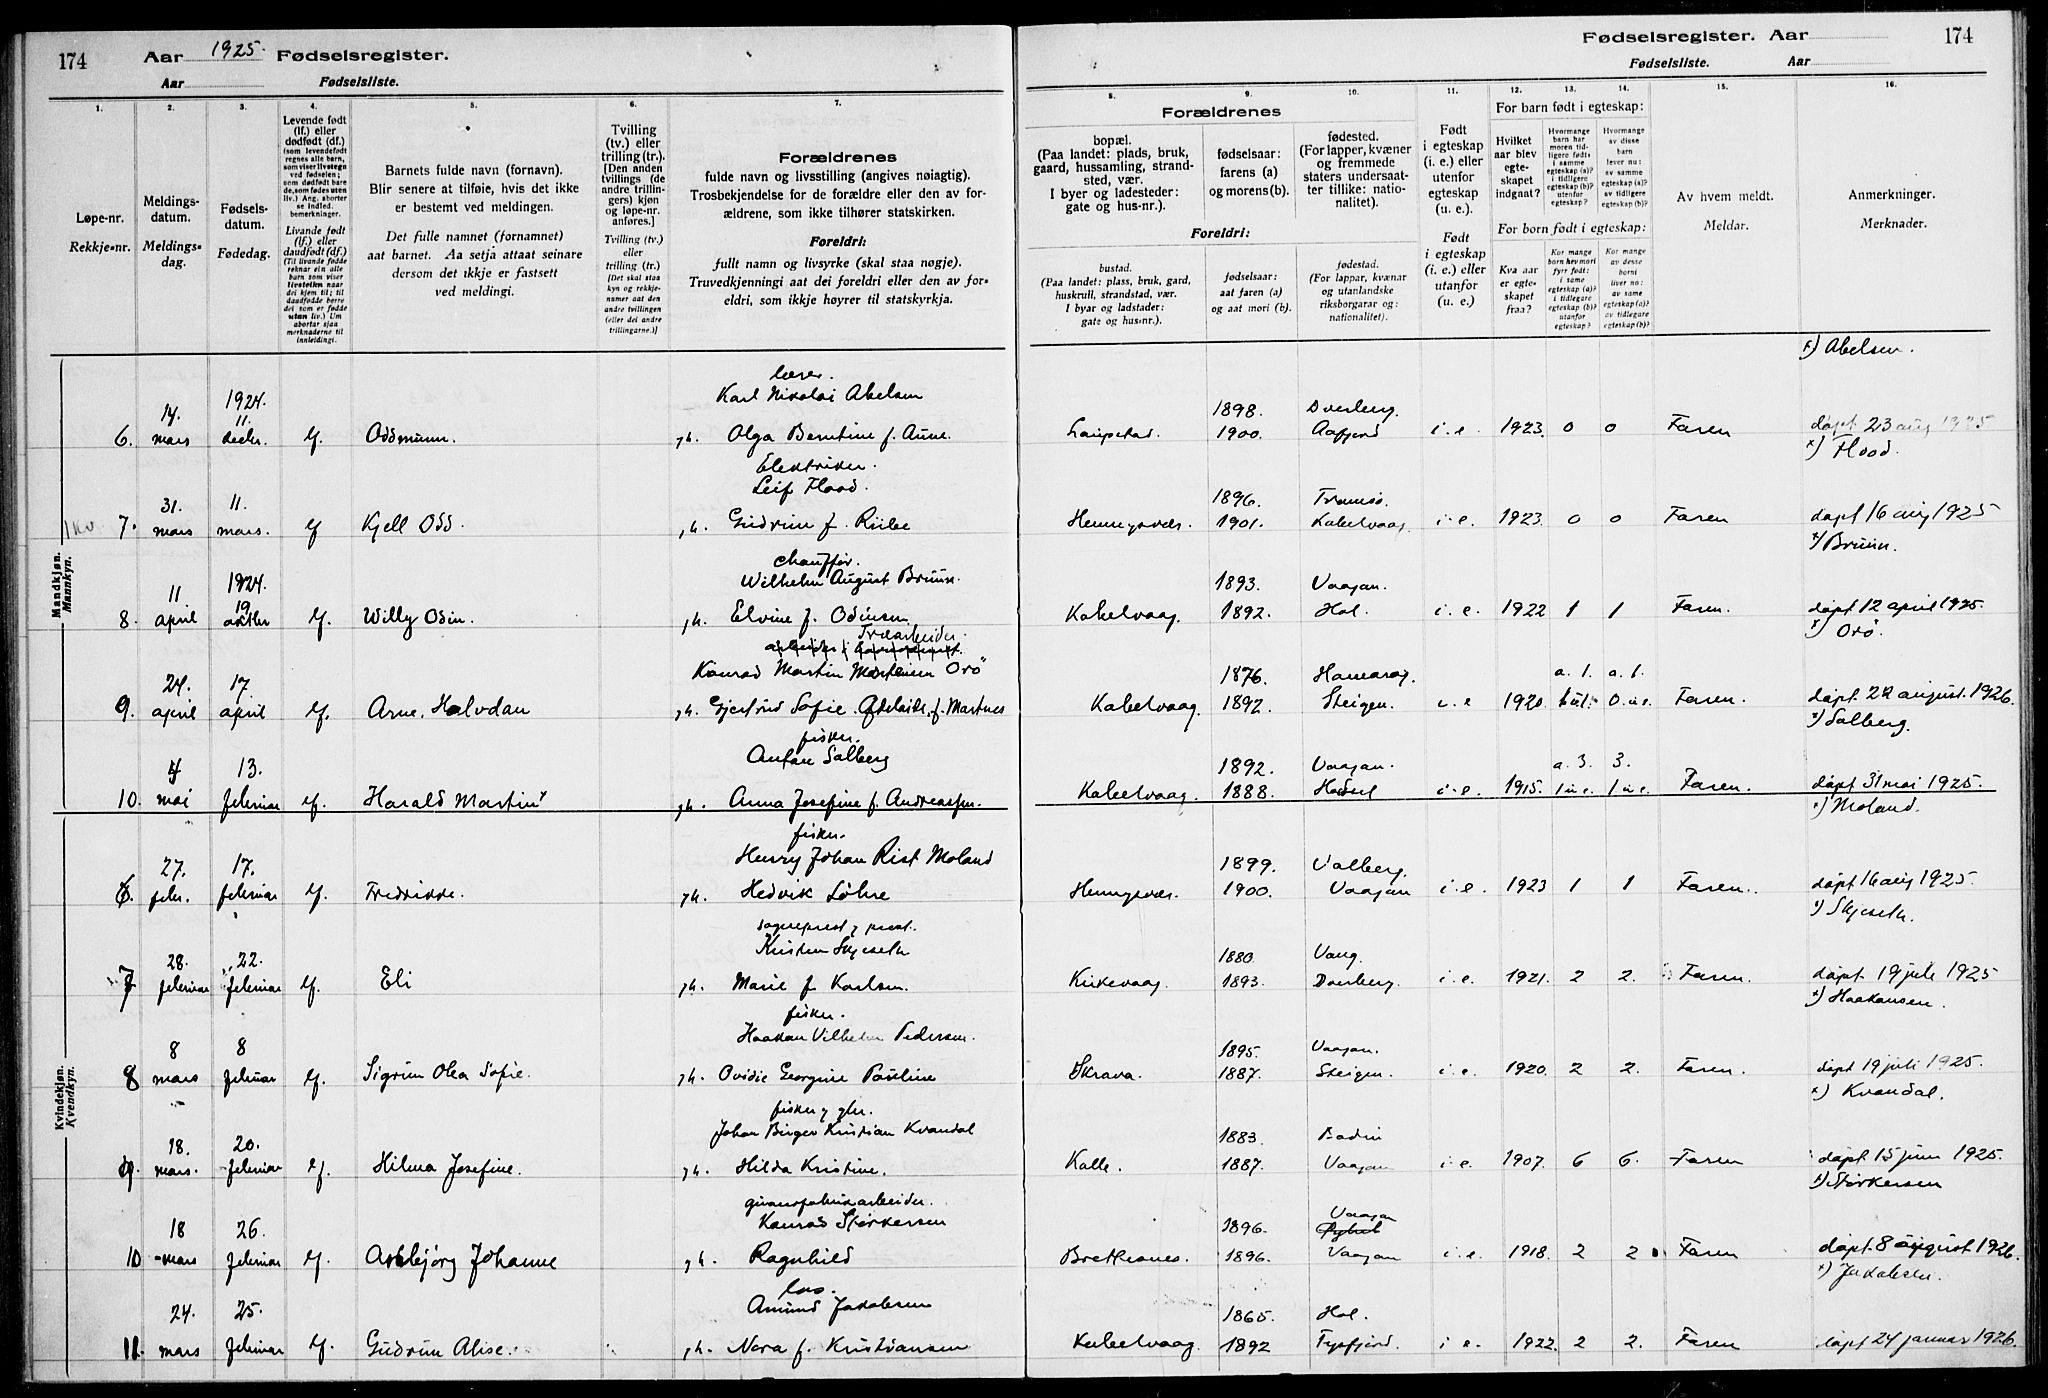 174
Aar 1925. Fødselsregister.
Aar Fødselsliste.
Fødselsregister. Aar 174
Fødselsliste. Aar
1. 2. 3. 4. 5. 6. 7. 8. 9. 10. 11. 12. 13. 14. 15. 16.
Løpe-nr.
Rekkje-nr.
Meldings-
datum.
Meldings-
dag.
Fødsels-
datum.
Fødedag.
Levende født
(lf.) eller
dødfødt (df.)
(som levendefødt
regnes alle barn,
som viser livstegn
ved fødselen;
som dødfødt bare
de, som fødes uten
liv.) Ang. aborter
se indled.
bemerkninger.
Livande født
(lf.) eller
daudfødt (df.)
(Til livande fødde
reknar ein alle
barn som viser
livsteikn naar
dei kjem til; til
daudfødde berre
dei som er fødde
utan liv.) Um
abortar sjaa
merknaderne til
innleidingi.
Barnets fulde navn (fornavn).
Blir senere at tilføie, hvis det ikke
er bestemt ved meldingen.
Det fulle namnet (fornamnet)
aat barnet. Aa setja attaat seinare
dersom det ikkje er fastsett
ved meldingi.
Tvilling
(tv.) eller
trilling (tr.).
[Den anden
tvillings (de
andre trillin-
gers) kjøn
og løpe-nr.
anføres.]
Tvilling (tv.)
eller
trilling (tr.)
[Det skal staa
kyn og rekkje-
numer aat den
andre tvillingen
(eller dei andre
trillingarne.)]
Forældrenes
fulde navn og livsstilling (angives nøiagtig).
Trosbekjendelse for de forældre eller den av for-
ældrene, som ikke tilhører statskirken.
Foreldri:
fullt namn og livsyrke (skal staa nøgje).
Truvedkjenningi aat dei foreldri eller den av for-
eldri, som ikkje høyrer til statskyrkja.
Forældrenes
bopæl.
(Paa landet: plads, bruk,
gaard, hussamling, strand-
sted, vær.
I byer og ladesteder:
gate og hus-nr.).
fødselsaar:
farens (a)
og morens (b).
fødested.
(For lapper, kvæner
og fremmede
staters undersaat-
ter tillike: natio-
nalitet).
Foreldri:
bustad.
(Paa landet: plass, bruk, gard,
huskrull, strandstad, vær.
I byar og ladstader:
gate og hus-nr.).
fødselsaar:
aat faren (a)
og aat mori (b).
fødestad.
(For lappar, kvænar
og utanlandske
riksborgarar og:
nationalitet).
Født
i egteskap
(i. e.) eller
utenfor
egteskap
(u. e.).
Født
i egteskap
(i. e.) eller
utanfor
(u. e.)
For barn født i egteskap:
Hvilket
aar blev
egte-
skapet
indgaat?
Hvormange
barn har
moren tid-
ligere født:
i samme
egteskap (a)?
i tidligere
egteskap (b)?
utenfor
egteskap?
Hvormange
av disse
barn
lever nu:
av samme
egteskap (a)?
av tidligere
egteskap (b)?
For born født i egteskap:
Kva aar
er egte-
skapet
fraa?
Kor mange
born hev mori
fyrr født:
i same
egteskap (a)?
i tidlegare
egteskap (b)?
utanfor
egteskap?
Kor mange
av desse
borni
liver no:
av same
egteskap (a)?
av tidlegare
egteskap (b)?
Av hvem meldt.
Meldar.
Anmerkninger.
Merknader.
Mandkjøn.
Mannkyn.
x) Abelsen.
lærer.
Karl Nikolai Abelsen
6. 14. mars 1924. 11. decbr. lf. Oddmunn. gh. Olga Berntine f. Aune Laupstad. 1898. 1900. Dverberg. Aafjord i. e. 1923. 0 0 Faren døpt 23 aug 1925
x) Flood.
Elektriker.
Leif Flood.
7. 31. mars 11. mars. lf Kjell Odd. gh. Gudrun f. Riibe Henningsvær. 1896. 1901. Tromsø. Kabelvaag i. e. 1923. 0 0 Faren døpt 16 aug 1925
x) Bruun.
chauffør.
Wilhelm August Bruun.
8. 11 april 1924. 19 oktbr lf. Willy Odin. gh. Elvine f. Odinsen Kabelvaag. 1893. 1892. Vaagan. Hol. i. e. 1922 1 1 Faren. døpt 12 april 1925.
x) Orø.
Træarbeider.
Konrad Martin Mortensen Orø
9. 24. april 17. april lf. Arne Halvdan gh. Gjertrud Sofie Adelaide f. Martnes Kabelvaag. 1876. 1892. Hamarøy. Steigen. i. e 1920. a. 1. a. 1. 0 u.e. Faren. døpt 22 august. 1926.
x) Salberg.
fisker.
Anfan Salberg
10. 4 mai 13. februar lf. Harald Martin gh. Anna Josefine f. Andreassen. Kabelvaag. 1892. 1888. Vaagan. Hadsel i. e. 1915. a. 3. 3. 1 u.e. 1 u.e. Faren. døpt 31 mai 1925.
Kvindekjøn.
Kvendkyn.
x) Moland.
fisker.
Henry Johan Rist Moland
6. 27. febr. 17. februar lf. Fredrikke. gh. Hedvik Løhre Henningsvær. 1899. 1900. Valberg. Vaagan i. e. 1923 1 1 Faren. døpt 16 aug 1925.
x) Skjeseth.
sogneprest
Kristen Skjeseth
7 28. februar 22. februar lf. Eli gh. Marie f Karlsen. Kirkevaag. 1880. 1893. Vang. Dverberg. i. e. 1921. 2 2. Faren. døpt 19 juli 1925
x) Haakonsen.
fisker.
Haakon Vilhelm Pedersen.
8 8 mars 8 februar lf. Sigrun Olea Sofie. gh. Ovidie Georgine Pauline Skrova. 1895. 1887. Vaagan. Steigen. i. e. 1920. 2 2. Faren. døpt 19 juli 1925.
x) Kvandal.
fisker
Johan Birger Kristian Kvandal
9. 18. mars. 20. februar lf. Hilma Josefine. gh. Hilda Kristine. Kalle. 1883. 1887. Bodin Vaagan i. e. 1907. 6 6. Faren døpt 15 juni 1925.
x) Størkersen
guanofabrikarbeider.
Konrad Størkersen
10 18 mars 26. februar lf. Asbjørg Johanne gh. Ragnhild Brettesnes. 1896. 1896. Vaagan Vaagan i. e. 1918. 2 2 Faren døpt. 8 august 1926.
x) Jakobsen.
los.
Amund Jakobsen
11. 24. mars 25. februar lf. Gudrun Alise. gh. Nora f. Kristiansen Kabelvaag. 1865. 1892 Hol. Tysfjord. i e. 1922. 2 2. Faren døpt 24 januar 1926.